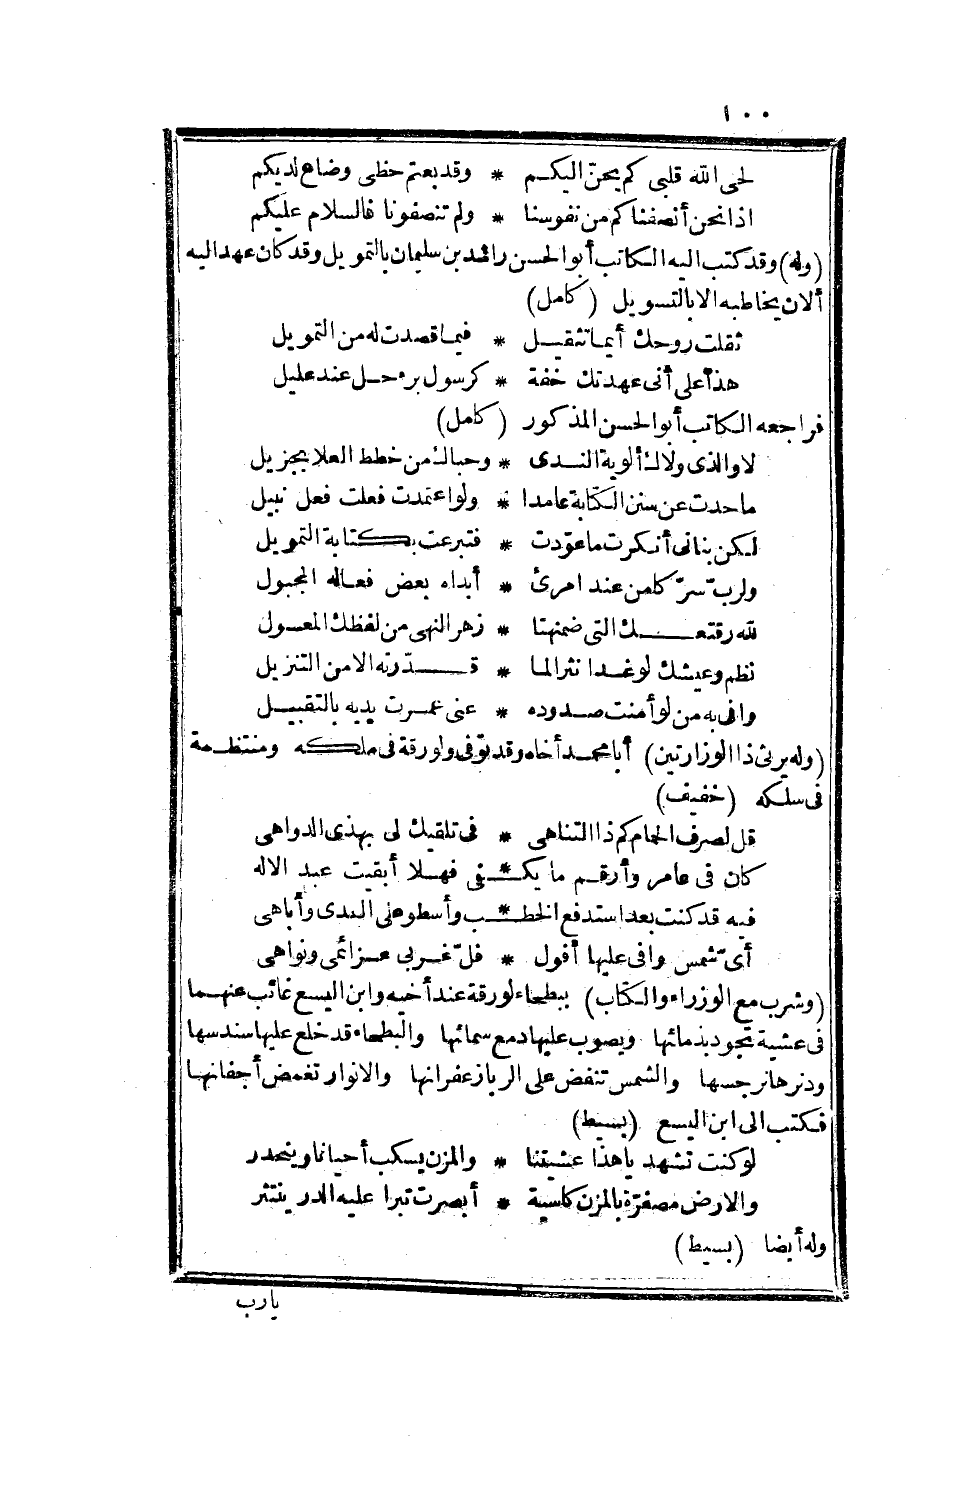 ١٠٠
لحى الله قلبى كم يحنّ اليكم * وقد بعتم حظى وضاع لديكم
اذا نحن أنصفناكم من نفوسنا * ولم تنصفونا فالسلام عليكم
(وله) وقد كتب اليه الكاتب أبو الحسن راشد بن سليمان بالتمويل وقد كان عهد اليه
ألان يخاطبه الا بالتسويل (كامل)
ثقلت روحك أيما تثقيل * فيما قصدت له من التمويل
هذا على أنى عهدتك خفة * كرسول برء حل عند عليل
فراجعه الكاتب أبو الحسن المذكور (كامل)
لا والذى ولاك ألوية الندى * وحباك من خطط العلا بجزيل
ما حدت عن سنن الكتابة عامدا * ولو اعتمدت فعلت فعل نبيل
لكن بنانى أنكرت ما عوّدت * فتبرعت بكتابة التمويل
ولربّ سرّ كامن عند امرئ * أبداه بعض فعاله المجبول
لله رقتعك التى ضمنها * زهر النهى من لفظك المعسول
نظم وعيشك لو غدا نثرالما * قدّرته الا من التنزيل
وافى به من لو أمنت صدوده * عنى غمرت يديه بالتقبيل
(وله يرثى ذا الوزارتين) أبا محمد أخاه وقد توّفى ولورقة فى ملكه ومنتظمة
فى سلكه (خفيف)
قل لصرف الحمام كم ذا التناهى * فى تلقيك لى بهذى الدواهى
كان فى عامر وأرقم ما يكـ * ـفى فهلا أبقيت عبد الاله
فيه قد كنت بعد استدفع الخطـ * ـب وأسطو على العدى وأباهى
أىّ شمس وافى عليها أفول * فلّ غربى عزائمى ونواهى
(وشرب مع الوزراء والكتاب) ببطحاء لورقة عند أخيه وابن اليسع غائب عنهما
فى عشية تجود بذمائها ويصوب عليها دمع سمائها والبطحاء قد خلع عليها سندسها
ودنرها نرجسها والشمس تنفض على الرباز عفرانها والانوار تغمض أجفانها
فكتب الى ابن اليسع (بسيط)
لو كنت تشهد يا هذا عشيتنا * والمزن يسكب أحيانا وينحدر
والارض مصفرّة بالمزن كاسية * أبصرت تبرا عليه الدر ينتثر
وله أيضا (بسيط)
يارب